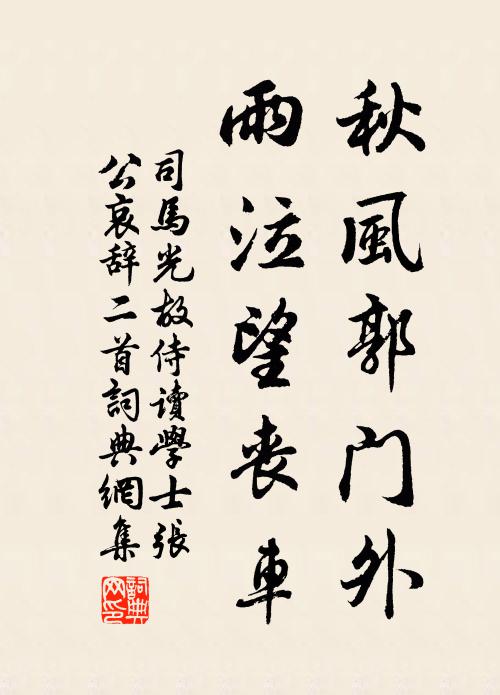 秋風郭门外
雨泣望丧車
司馬光故侍讀學士張
公哀辞二首詞典網集
詞典
网印